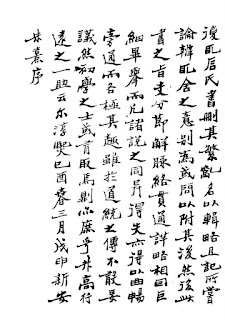 復取石氏書刪其繁亂名以輯略且記所嘗
論辯取舍之意別為或問以附其後然後此
書之旨支分節解脈絡貫通詳略相因巨
細畢舉而凡諸說之同異得失亦得以曲暢
旁通而各極其趣雖於道統之傳不敢妄
議然初學之士或有取焉則亦庶乎升高行
遠之一助云尔淳熙己酉春三月戊申新安
朱熹序